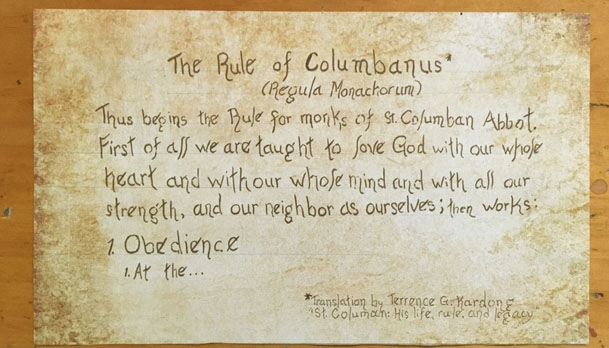 The Rule of Columbanus*
(Regula Monachorum)
Thus begins the Rule for monks of St. Columban Abbot.
First of all we are taught to love God with our whole
heart and with our whole mind and with all our
strength, and our neighbor as ourselves; then works:
1. Obedience
1. At the...
*Translation by Terrence G. Kardong
"St. Columban: His life, rule, and legacy"